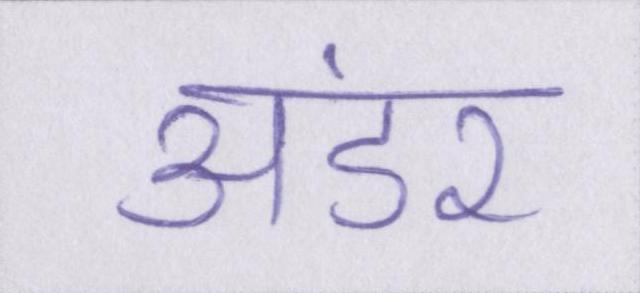 अंडर